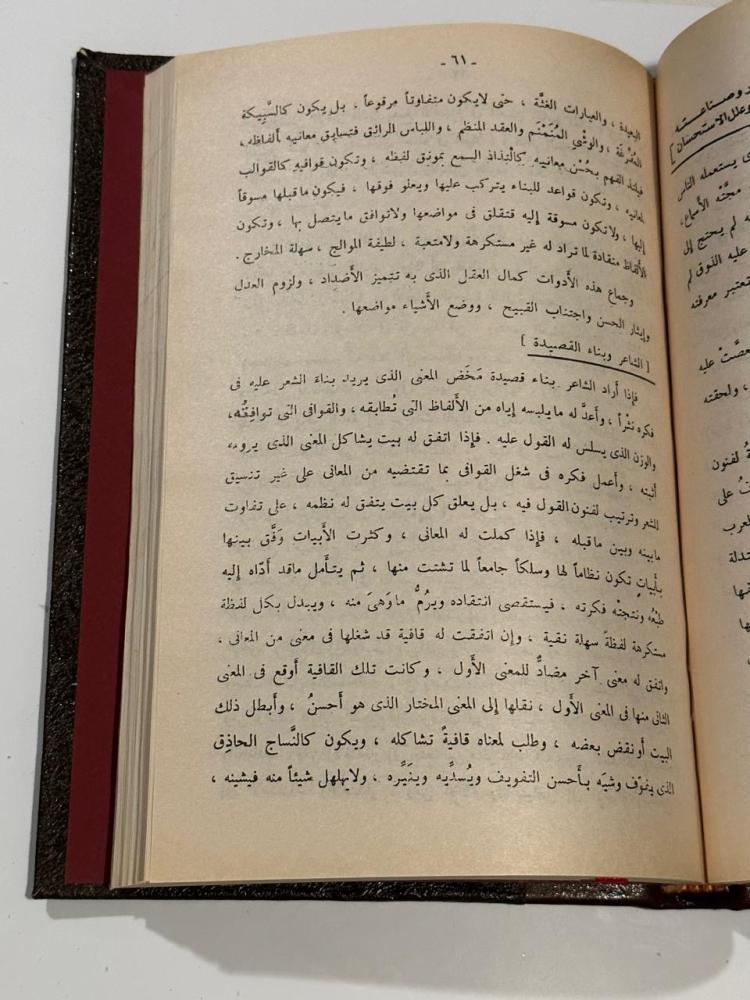 - ٦١ -
البعيدة ، والعبارات الغثَّة ، حتى لايكون متفاوتاً مرقوعاً . بل يكون كالسَّبِيكة
المُفْرَغَة ، والوشْي المُنَمْنَم والعقد المنظم ، واللباس الرائق فتسابق معانيه ألفاظه ،
فيلتذ الفهم بحُسْن معانيه كالْتِذاذ السمع بمونق لفظه ، وتكون قوافيه كالقوالب
لمعانيه ، وتكون قواعد للبناء يتركب عليها ويعلو فوقها ، فيكون ماقبلها مسوقاً
إليها ، ولاتكون مسوقة إليه فتقلق فى مواضعها ولاتوافق مايتصل بها ، وتكون
الألفاظ منقادة لما تراد له غير مستكرهة ولامتعبة ، لطيفة الموالج ، سهلة المخارج .
وجماع هذه الأَدوات كمال العقل الذى به تتميز الأَضداد ، ولزوم العدل
وإيثار الحسن واجتناب القبيح ، ووضع الأَشياء مواضعها .
[ الشاعر وبناء القصيدة ]
فإذا أراد الشاعر بناء قصيدة مَخَض المعنى الذى يريد بناءَ الشعر عليه فى
فكره نثْراً ، وأَعدَّ له مايلبسه إياه من الأَلفاظ التى تُطابقه ، والقوافى التى توافقُه،
والوزن الذى يسلس له القول عليه . فإذا اتفق له بيت يشاكل المعنى الذى يرومه
أثبته ، وأَعمل فكره فى شغل القوافى بما تقتضيه من المعانى على غير تنسيق
للشعر وترتيب لفنون القول فيه ، بل يعلق كل بيت يتفق له نظمه ، على تفاوت
مابينه وبين ماقبله ، فإذا كملت له المعانى ، وكثرت الأَبيات وَفَّق بينها
بأبياتٍ تكون نظاماً لها وسلكاً جامعاً لما تشتت منها ، ثم يتأَمل ماقد أدّاه إليه
طبْعُه ونتجتْه فكرته ، فيستقصى انتقاده ويرُمُّ ماوَهىَ منه ، ويبدل بكل لفظة
مستكرهة لفظةً سهلة نقية ، وإن اتفقت له قافية قد شغلها فى معنى من المعانى ،
واتفق له معنى آخر مضادٌّ للمعنى الأَول ، وكانت تلك القافية أَوقع فى المعنى
الثانى منها فى المعنى الأَول ، نقلها إلى المعنى المختار الذى هو أَحسنُ ، وأَبطل ذلك
البيت أو نقض بعضه ، وطلب لمعناه قافيةً تشاكله ، ويكون كالنَّساج الحاذِق
الذى يفوّف وشيَه بأَحسن التفويف ويُسدِّيه وينَيِّره ، ولايهلهل شيئاً منه فيشينه ،
وصناعته
وعلل الاستحسان ]
يستعمله الناس
مجَّتْه الأَسماع،
لم يحتج إلى
عليه الذوق لم
تعتبر معرفته
عليه
، ولحقته
لفنون
على